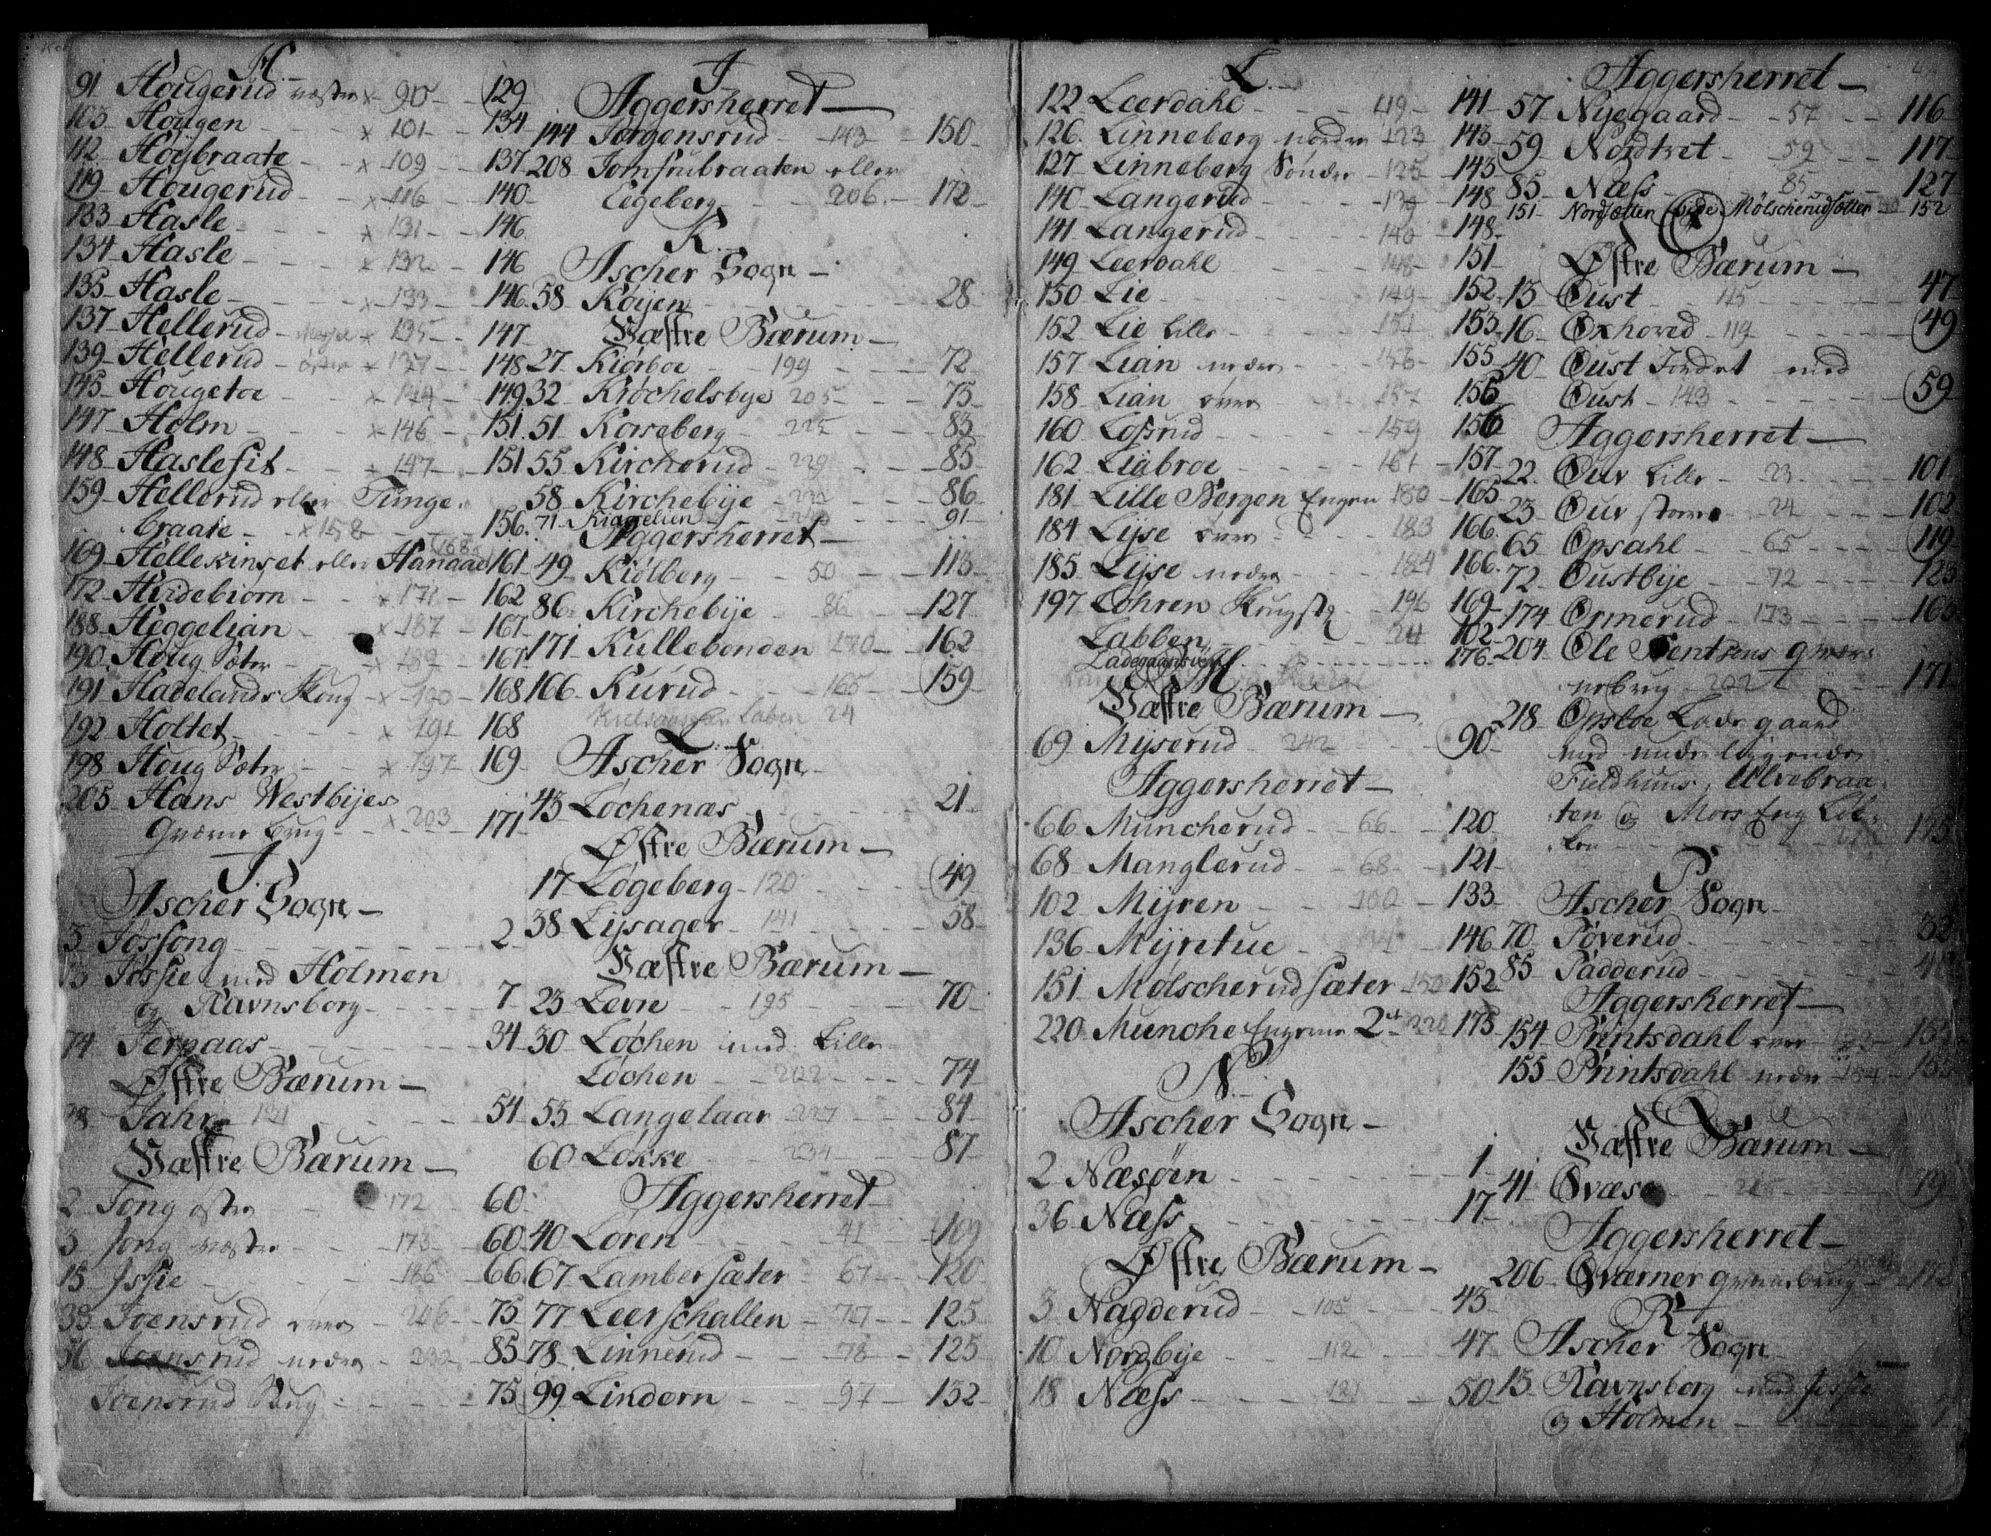 H.
91 Hougerud væstre x 90 129
103 Hougen x 101 134
112 Høybraate x 109 137
119 Hougerud x 116 140
133 Hasle x 131 146
134 Hasle x 132 146
135 Hasle x 133 146
137 Hellerud x 135 147
139 Hellerud x 137 148
145 Hougetoe x 144 149
147 Holm x 146 151
148 Haslefit x 147 151
159 Hellerud eller Tunge-
braate x 158 156
169 Hellekinset eller Hanaae 168 161
172 Hvidebiorn x 171 162
188 Heggelian x 187 167
190 Houg Sæter x 189 167
191 Hadelands Houg x 190 168
192 Holtet x 191 168
198 Houg Sæter x 197 169
205 Hans Westbijes
Qværne brug x 203 171
J.
Ascher Sogn
3 Jøssong 2
13 Jossie med Holmen
og Ravnsborg 7
74 Jernaas 34
Østre Bærum
28 Jahr 131 54
Væstre Bærum
2 Jong østre 172 60
3 Jong væstre 173 60
15 Jssie 186 66
33 Joensrud øvre 206 75
56 Joensrud nædre 232 85
Joensrud 75
J
Aggersherret
144 Jørgensrud 143 150
208 Jomfrubraaten eller
Eegeberg 206 172
K.
Ascher Sogn
58 Køyen 28
Væstre Bærum
27 Kiørboe 199 72
32 Krøchelsbye 205 75
51 Korseberg 225 83
55 Kircherud 229 85
58 Kirchebije 86
71 Kiaglien 91
Aggersherret
49 Kiølberg 50 113
86 Kirchebije 86 127
171 Kullebonden 170 162
166 Kurud 165 159
24
L.
Ascher Sogn
43 Løchenæs 21
Østre Bærum
17 Løgeberg 120 49
38 Lijsager 141 58
Væstre Bærum
23 Levre 195 70
30 Løchen med Lille
Løchen 202 74
53 Langelaar 227 84
60 Løkke 234 87
Aggersherret
40 Løren 41 109
67 Lambersæter 67 120
77 Leerschallen 77 125
78 Linnerud 78 125
99 Lindern 97 132
L.
122 Leerdahl 119 141
126 Linneberg nordre 123 143
127 Linneberg Søndre 125 143
140 Langerud 139 148
141 Langerud 140 148
149 Leerdahl 148 151
150 Lie 149 152
152 Lie Lille 151 153
157 Lian nædre 156 155
158 Lian øvre 157 156
160 Lofsrud 159 156
162 Liabroe 161 157
181 Lille Bergen Engen 180 165
184 Lijse øvre 183 166
185 Lijse nædre 184 166
197 Lohren 196 169
Labben 24 102
Ladegaards 176
M.
Væstre Bærum
69 Mijserud 242 90
Aggersherret
66 Muncherud 66 120
68 Manglerud 68 121
102 Mijren 100 133
136 Mijretue 134 146
151 Mølscherudsæter 150 152
220 Munche Engene 2de 220 175
N.
Ascher Sogn
2 Næsøen 1
36 Næss 17
Østre Bærum
3 Nadderud 105 43
10 Nordbije 112 47
18 Næss 121 50
Aggersherret
57 Nyegaard 57 116
59 Nordtvet 59 117
85 Næss 85 127
151 Nordsætter vide Mølscherudsætter 152
O
Østre Bærum
13 Oust 115 47
16 Oxhoved 119 49
40 Oust Jordet med
Oust 143 59
Aggersherret
22 Ouv Lille 23 101
23 Ouv store 24 102
65 Opsahl 65 119
72 Oustbije 72 123
174 Ormerud 173 163
204 Ole Bentsens qvær-
nebrug 202 171
218 Opsloe Ladegaard
med underliggende
Fieldhuus, Ulvebraa-
ten og Mors Eng Løk-
ken 175
P.
Ascher Sogn
70 Poverud 32
85 Padderud 40
Aggersherret
154 Printsdahl øvre 153
155 Printsdahl nædre 154
Q
Væstre Bærum
41 Qvæse 79
Aggersherret
206 Qværner qvernebrug 172
R.
Ascher Sogn
13 Ravnsborg med Jossie
og Holmen 7